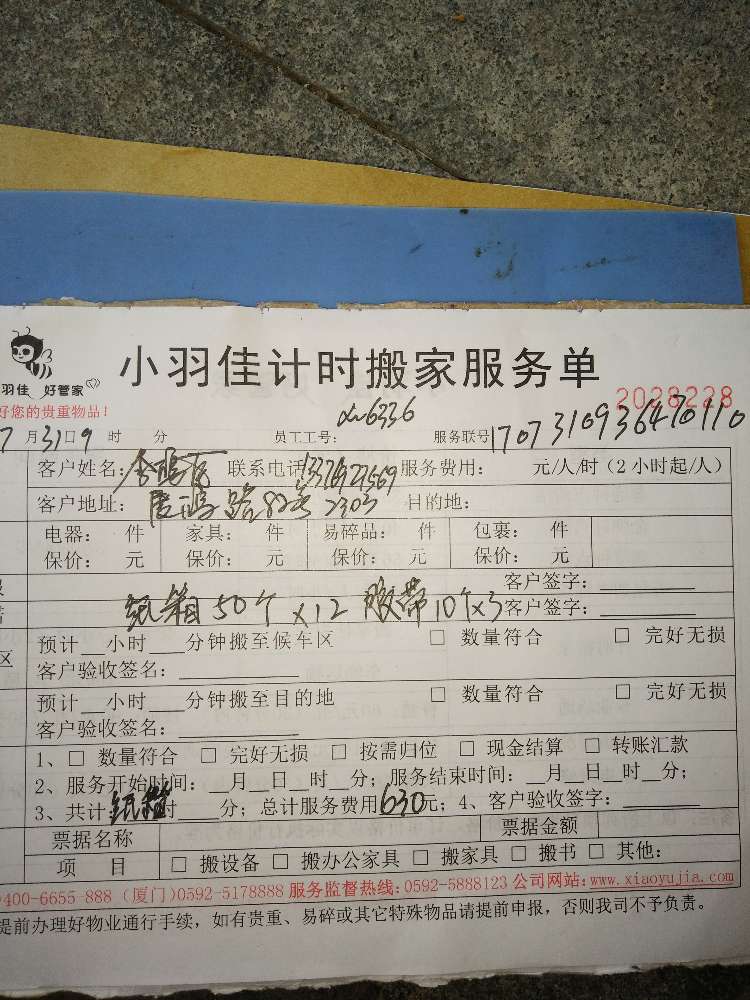 小羽佳计时搬家服务单
羽佳 好管家
好您的贵重物品！
2028228
7月31日9时 分 员工工号： 6336 服务联号1707310936470110
客户姓名： 联系电话： 服务费用： 元/人/时（2小时起/人）
客户地址： 路 2303 目的地：
电器： 件 家具： 件 易碎品： 件 包裹： 件
保价： 元 保价： 元 保价： 元 保价： 元
客户签字：
纸箱50个x12 胶带10个x3 客户签字：
区 预计__小时___分钟搬至候车区 □ 数量符合 □ 完好无损
客户验收签名：
预计__小时___分钟搬至目的地 □ 数量符合 □ 完好无损
客户验收签名：
1、□ 数量符合 □ 完好无损 □ 按需归位 □ 现金结算 □ 转账汇款
2、服务开始时间：__月__日__时__分；服务结束时间：__月__日__时__分；
3、共计 时 分；总计服务费用630元；4、客户验收签字：
票据名称 票据金额
项 目 □ 搬设备 □ 搬办公家具 □ 搬家具 □ 搬书 □ 其他：
400-6655-888（厦门）0592-5178888 服务监督热线：0592-5888123 公司网站：www.xiaoyujia.com
提前办理好物业通行手续，如有贵重、易碎或其它特殊物品请提前申报，否则我司不予负责。